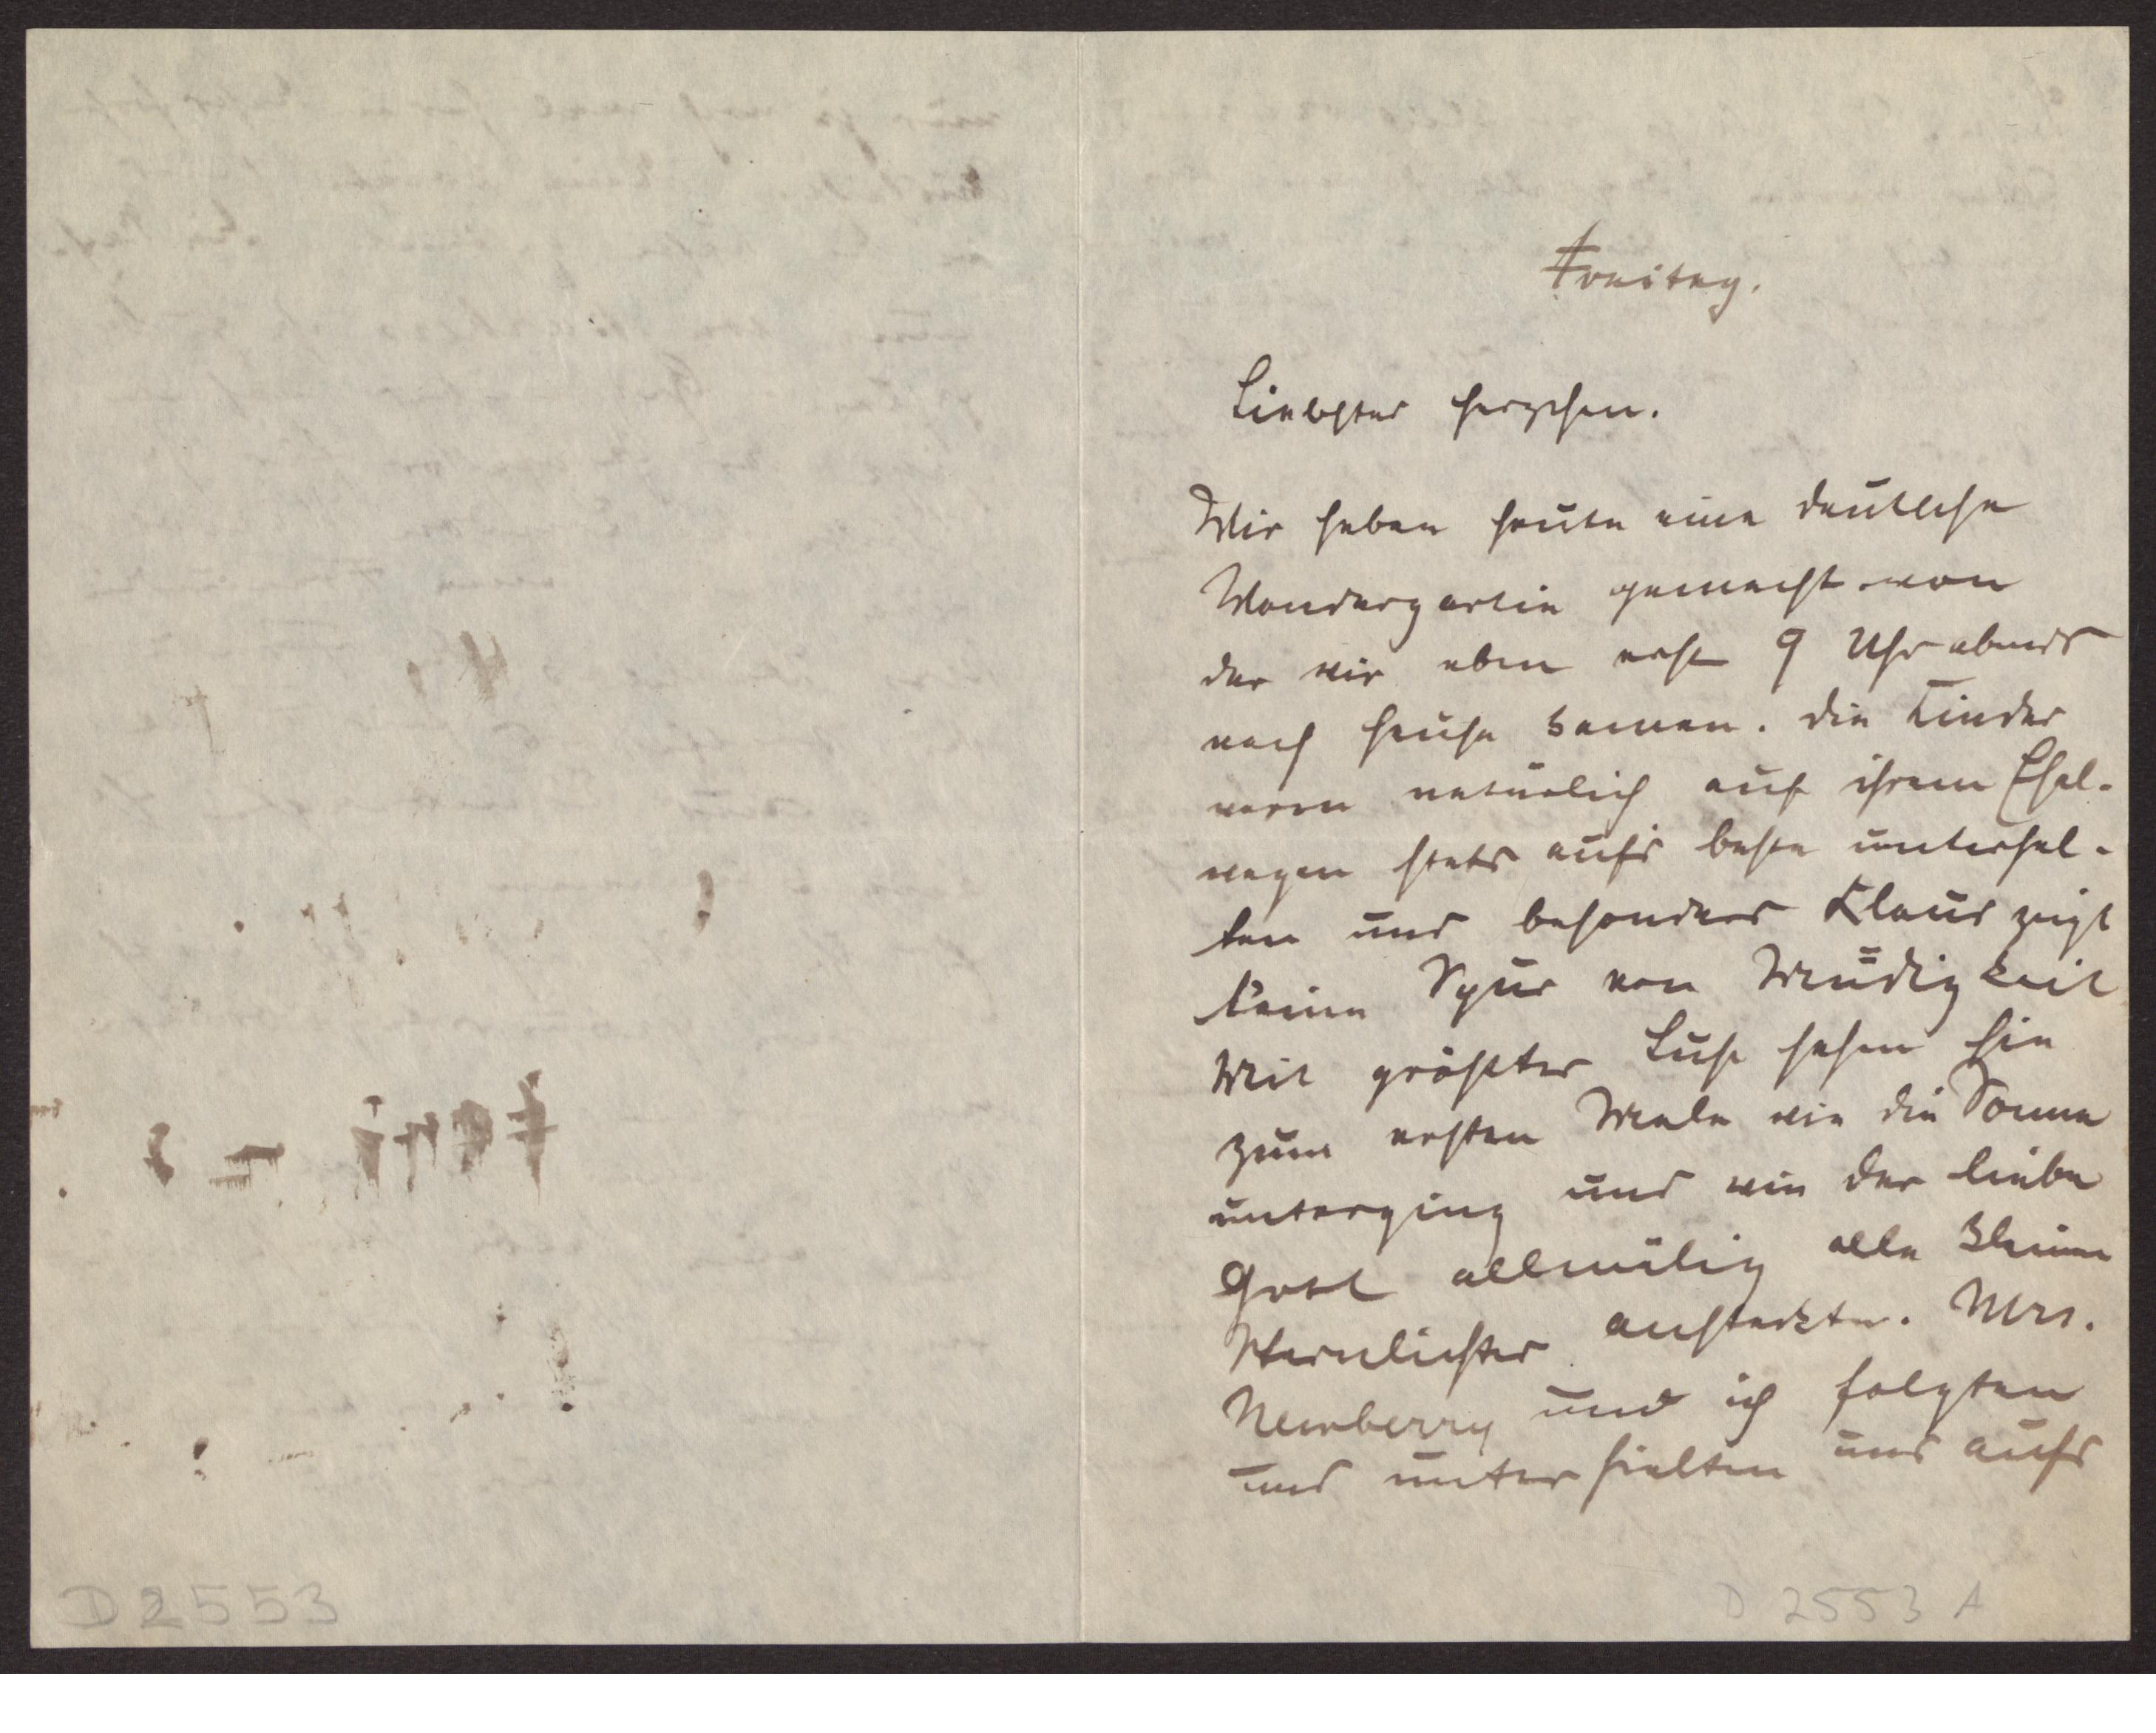 Freitag.
Liebster Herzchen.
Wir haben heute eine deutsche
Wanderpartie gemacht von
der wir eben erst 9 Uhr abends
nach Hause kamen. Die Kinder
waren natürlich auf ihrem Esel-
wagen stets aufs beste unterhal-
ten und besonders Klaus zeigt
keine Spur von Müdigkeit
Mit größter Lust sahen sie
zum ersten Male wie die Sonne
unterging und wie der liebe
Gott allmälig alle kleinen
Sternlichter ansteckte. Mrs.
Newberry und ich folgten
und unterhielten uns aufs
D 2553
D 2553 A